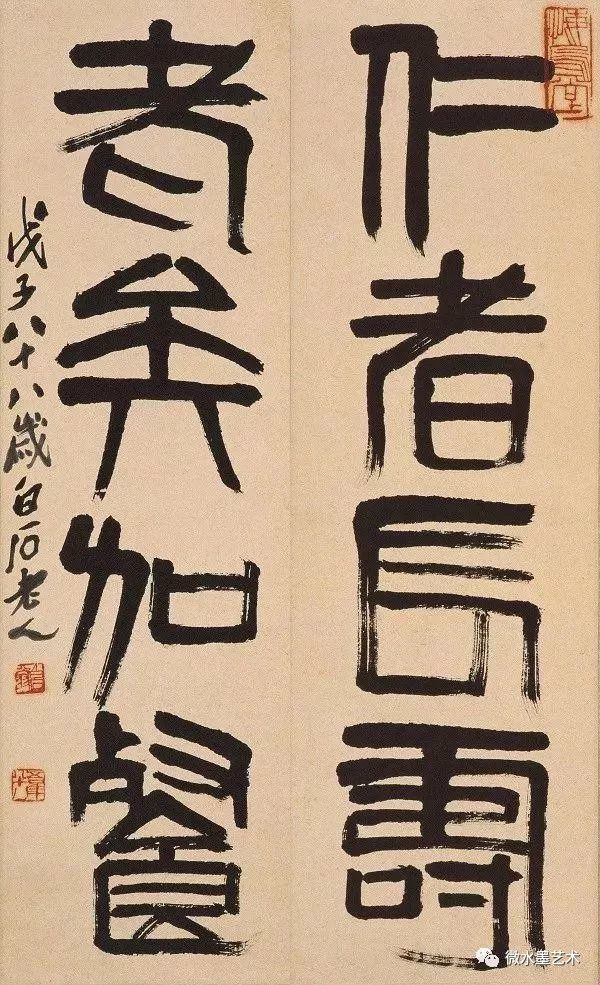 仁者長壽
老矣加餐
戊子八十八歲白石老人
微水墨艺术